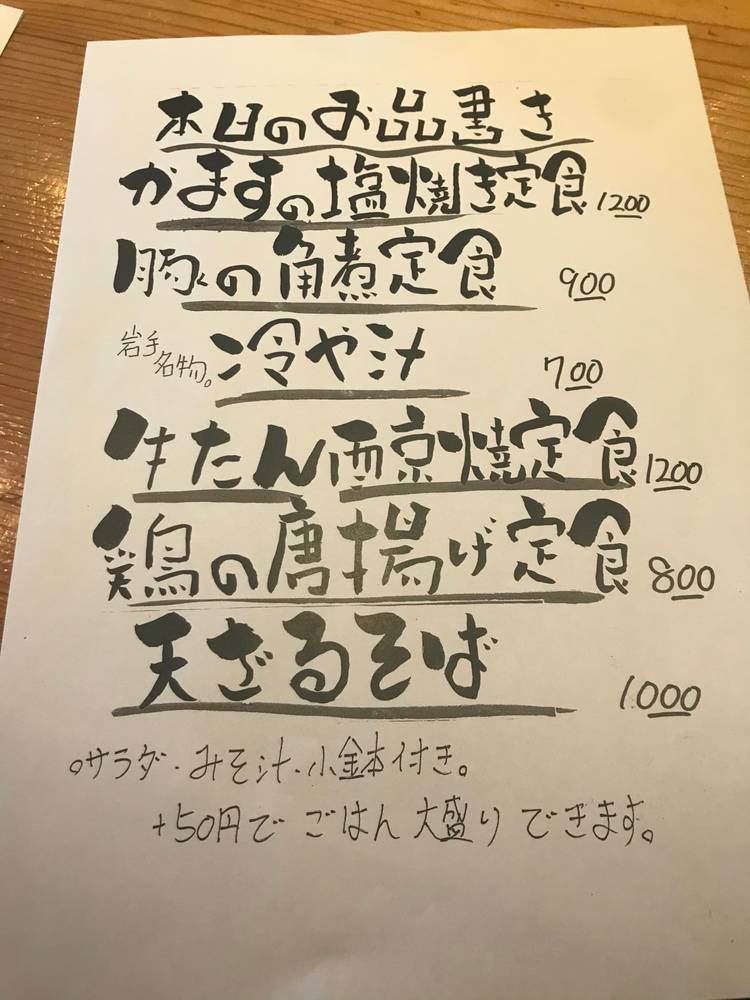 本日のお品書き
かますの塩焼き定食 1200
豚の角煮定食 900
岩手名物。冷や汁 700
牛たん西京焼定食 1200
鶏の唐揚げ定食 800
天ざるそば 1.000
○サラダ・みそ汁・小鉢付き。
+50円で ごはん 大盛り できます。